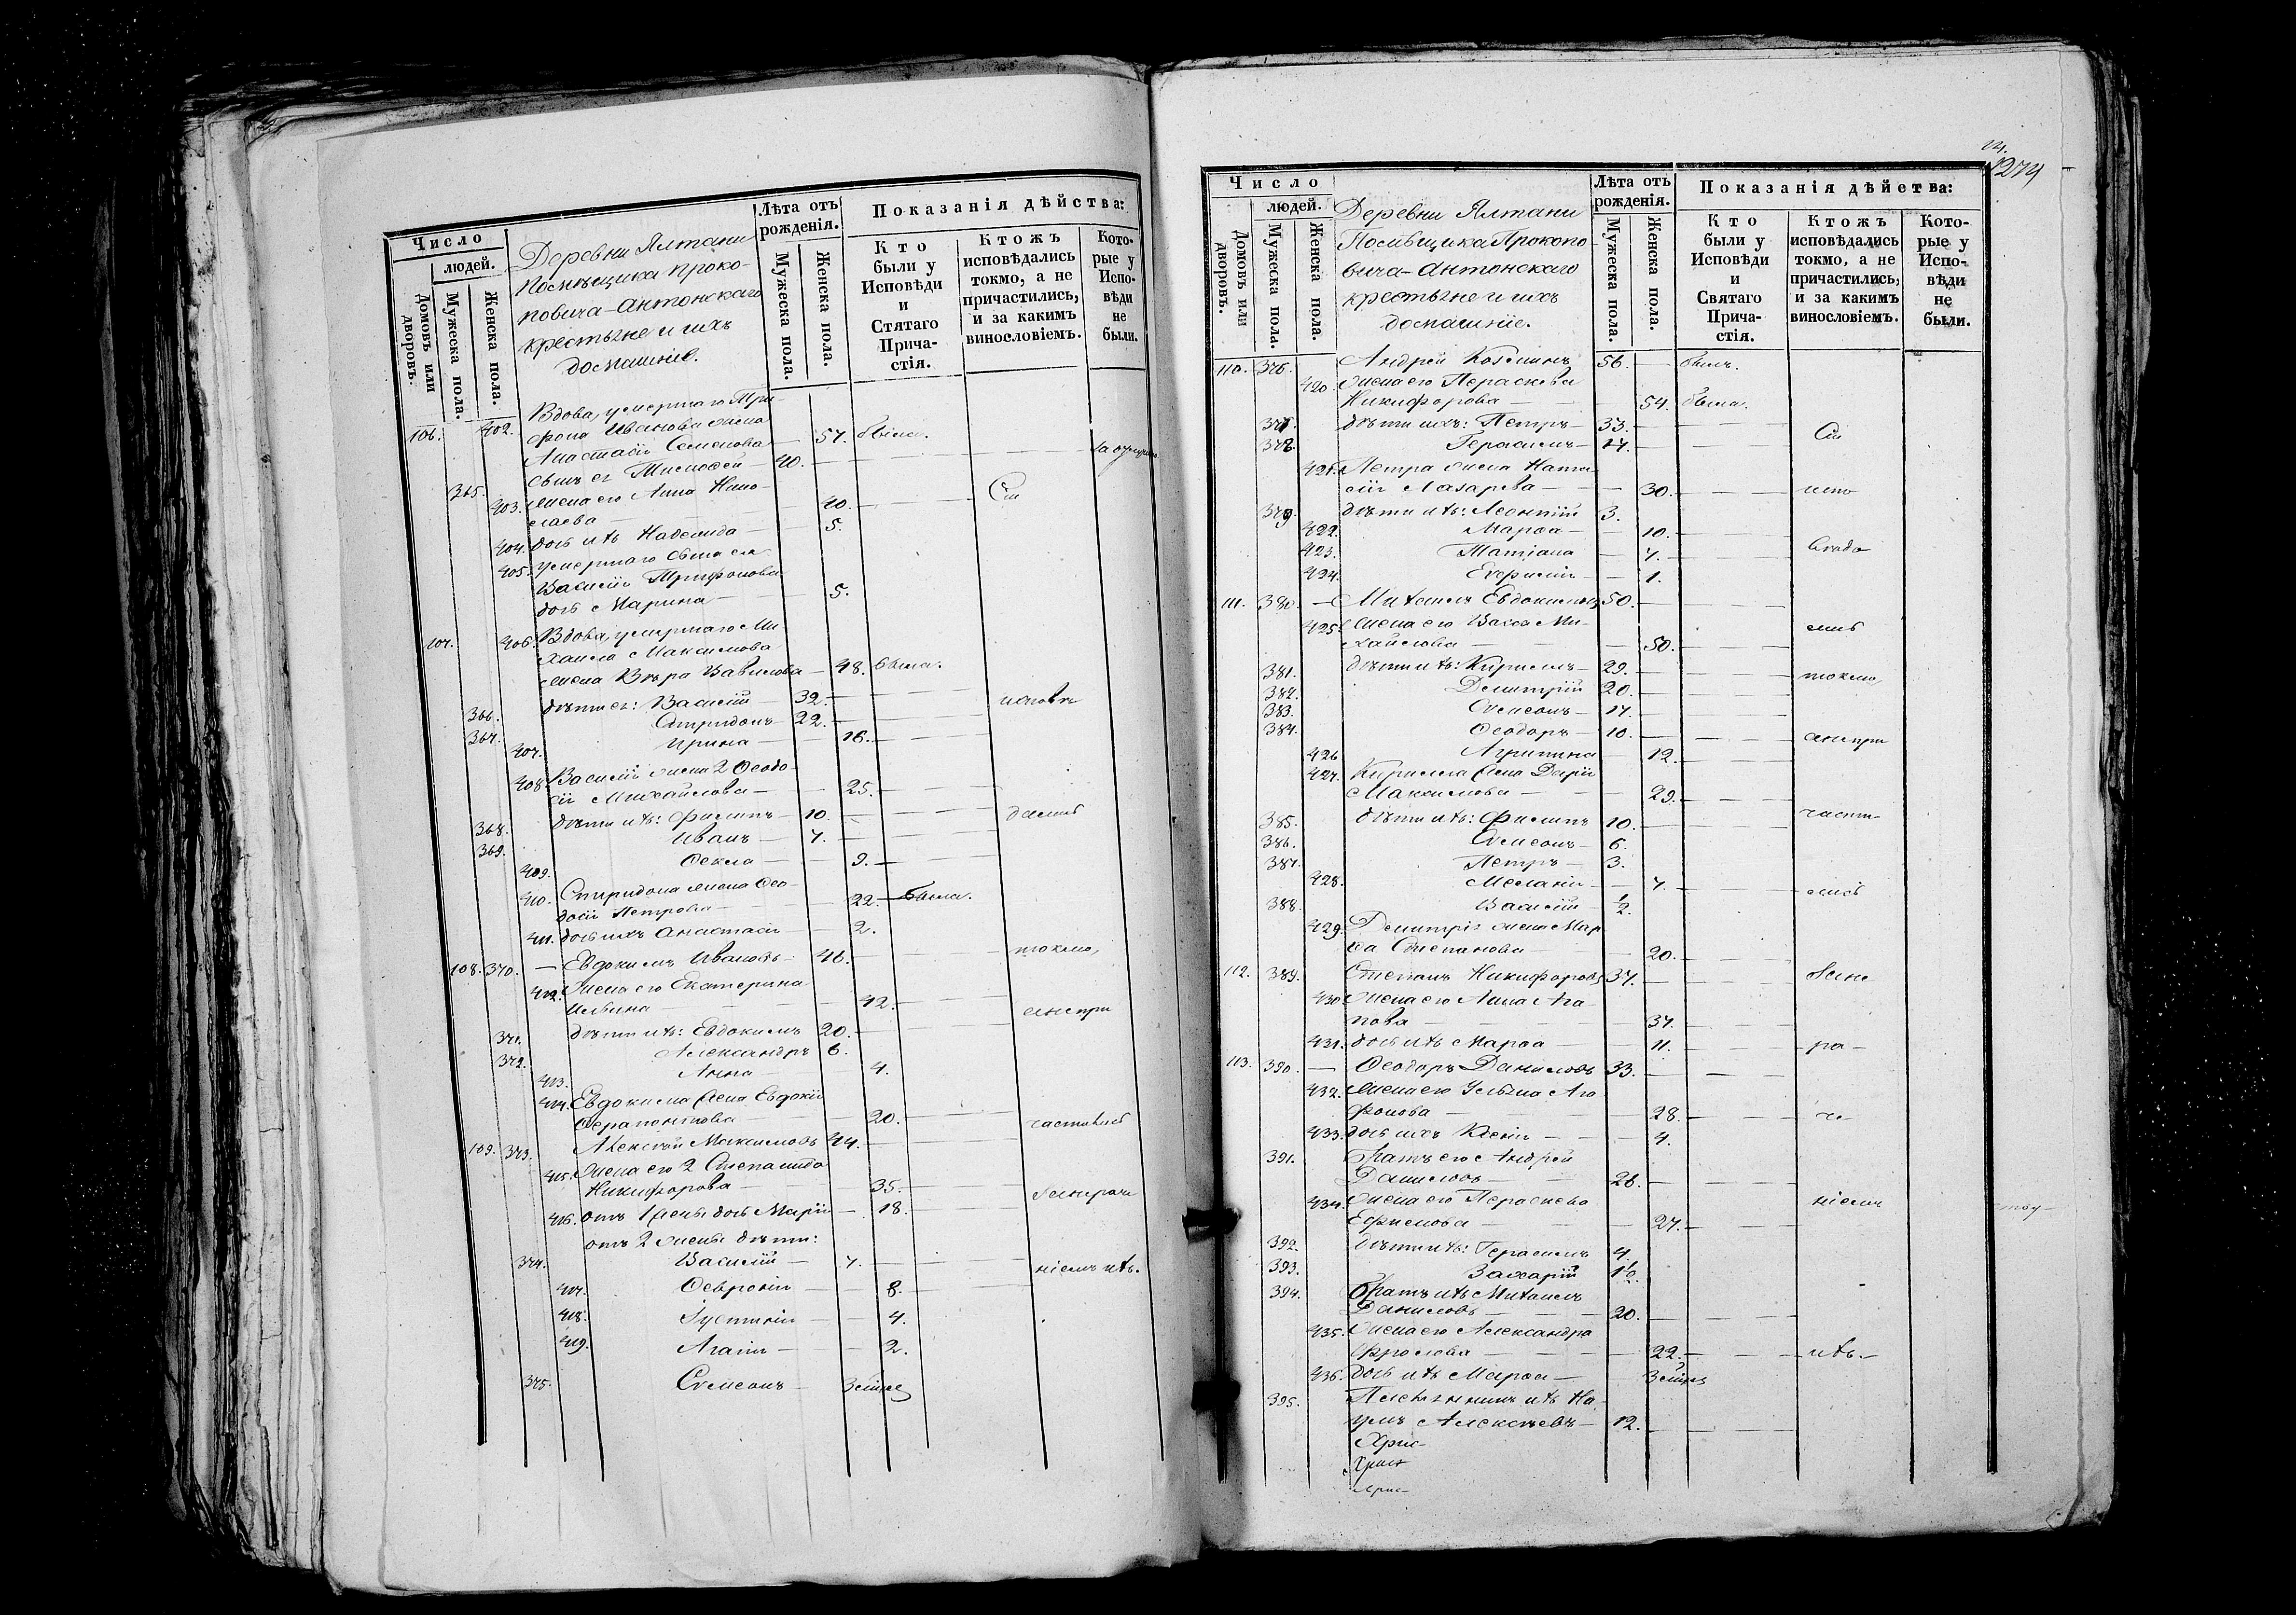 Число
людей.
Домовъ или дворовъ.
Мужеска пола.
Женска пола.
Деревни Ялтани
Помѣщика Проко-
повича-Антонскаго
крестьяне и ихъ
домашніе.
Лѣта отъ рожденія.
Мужеска пола.
Женска пола.
Показанія дѣйства:
Кто были у Исповѣди и Стятаго Прича-стія.
Ктожъ исповѣдались токмо, а не причастились, и за какимъ винословіемъ.
Кото-рые у Испо-вѣди не были.
106. 402. Вдова, умершаго Три-
фона Иванова жена
Анастасія Семенова — 57. была.
365. сынъ ея Тимофей — 40.
403. жена его Анна Нико-
лаева — 40. Сіи
404. дочь ихъ Надежда — 5.
405. умершаго сына ея
Василія Трифонова
дочь Марина — 5.
107. 406. Вдова, умершаго Ми-
хаила Максимова
жена Вѣра Вавилова — 48. была.
366. дѣти ея: Василій — 32. исповѣ
367. Спиридонъ — 22.
407. Ирина — 16.
408. Василія жена 2 Ѳеодо-
сія Михайлова — 25.
368. дѣти ихъ: Филипъ — 10. дались
369. Иванъ — 7.
409. Ѳекла — 9.
410. Спиридона жена Ѳео-
досія Петрова — 22. была.
411. дочь ихъ Анастасія — 2.
108. 370. — Евдокимъ Ивановъ — 46. токмо,
412. Жена его Екатерина
Ильина — 42.
371. дѣти ихъ: Евдокимъ 20. а не при
372. Александръ 6.
413. Анна — 4.
414. Евдокима жена Евдокія
Ѳерапонтова 20. частились
109. 373. Алексѣй Максимовъ 44.
415. Жена его 2 Степанида
Никифорова — 35.
416. отъ 1 жены дочь Марія — 18.
отъ 2 жены дѣти:
374. Василій — 7. ніемъ ихъ.
417. Ѳевронія — 8.
418. Іустинія — 4.
419. Агапія — 2.
375. Симеонъ —
274
Число
людей.
Домовъ или дворовъ.
Мужеска пола.
Женска пола.
Деревни Ялтани
Помѣщика Прокопо
вича-Антонскаго
крестьяне и ихъ
домашніе.
Лѣта отъ рожденія.
Мужеска пола.
Женска пола.
Показанія дѣйства:
Кто были у Исповѣди и Святаго Прича-стія.
Ктожъ исповѣдались токмо, а не причастились, и за какимъ винословіемъ.
Кото-рые у Испо-вѣди не были.
110. 376. Андрей Козминъ 56. — былъ.
420. Жена его Параскева
Никифорова — 54. была.
дѣти ихъ: Петръ — 33.
378. Герасимъ — 17. Сіи
421. Петра жена Ната-
лія Лазарева — 30. испо
379. дѣти ихъ: Леонтій 3.
422. Марѳа — 10.
423. Татіана — 7.
424. Евфимія — 1.
111. 380. — Михаилъ Евдокимовъ 50.
425. Жена его Васса Ми-
хайлова — 50.
381. дѣти ихъ: Кириллъ — 29. токмо,
382. Димитрій 20.
383. Симеонъ — 17.
384. Ѳеодоръ — 10. а не при
426 Агрипина — 12.
427. Кирилла жена Дарія
Максимова — 29.
385. дѣти ихъ: Филипъ 10. части-
386. Симеонъ — 6.
387. Петръ — 3.
428. Меланія — 7. лись
388. Василій — ½.
429. Димитрія жена Мар
ѳа Степанова — 20.
112. 389. Степанъ Никифоровъ 37.
430. Жена его Анна Ага
пова — 37.
431. дочь ихъ Марѳа — 11. ра —
113. 390. — Ѳеодоръ Даниловъ 33.
432. Жена его Ульяна Ага
фонова — 28. че-
433. дочь ихъ Ксенія — 4.
391. Братъ его Андрей
Даниловъ — 26.
434. Жена его Параскева
Ефимова — 27. ніемъ
392. дѣти ихъ: Герасимъ 4.
393. Захарій 1½.
394. Братъ ихъ Михаилъ
Даниловъ — 20.
435. Жена его Александра
Фролова — 22. — ихъ. —
436. дочь ихъ Марѳа —
395. Племянникъ ихъ На-
умъ Алексѣевъ — 12.
Хрис-
Христ